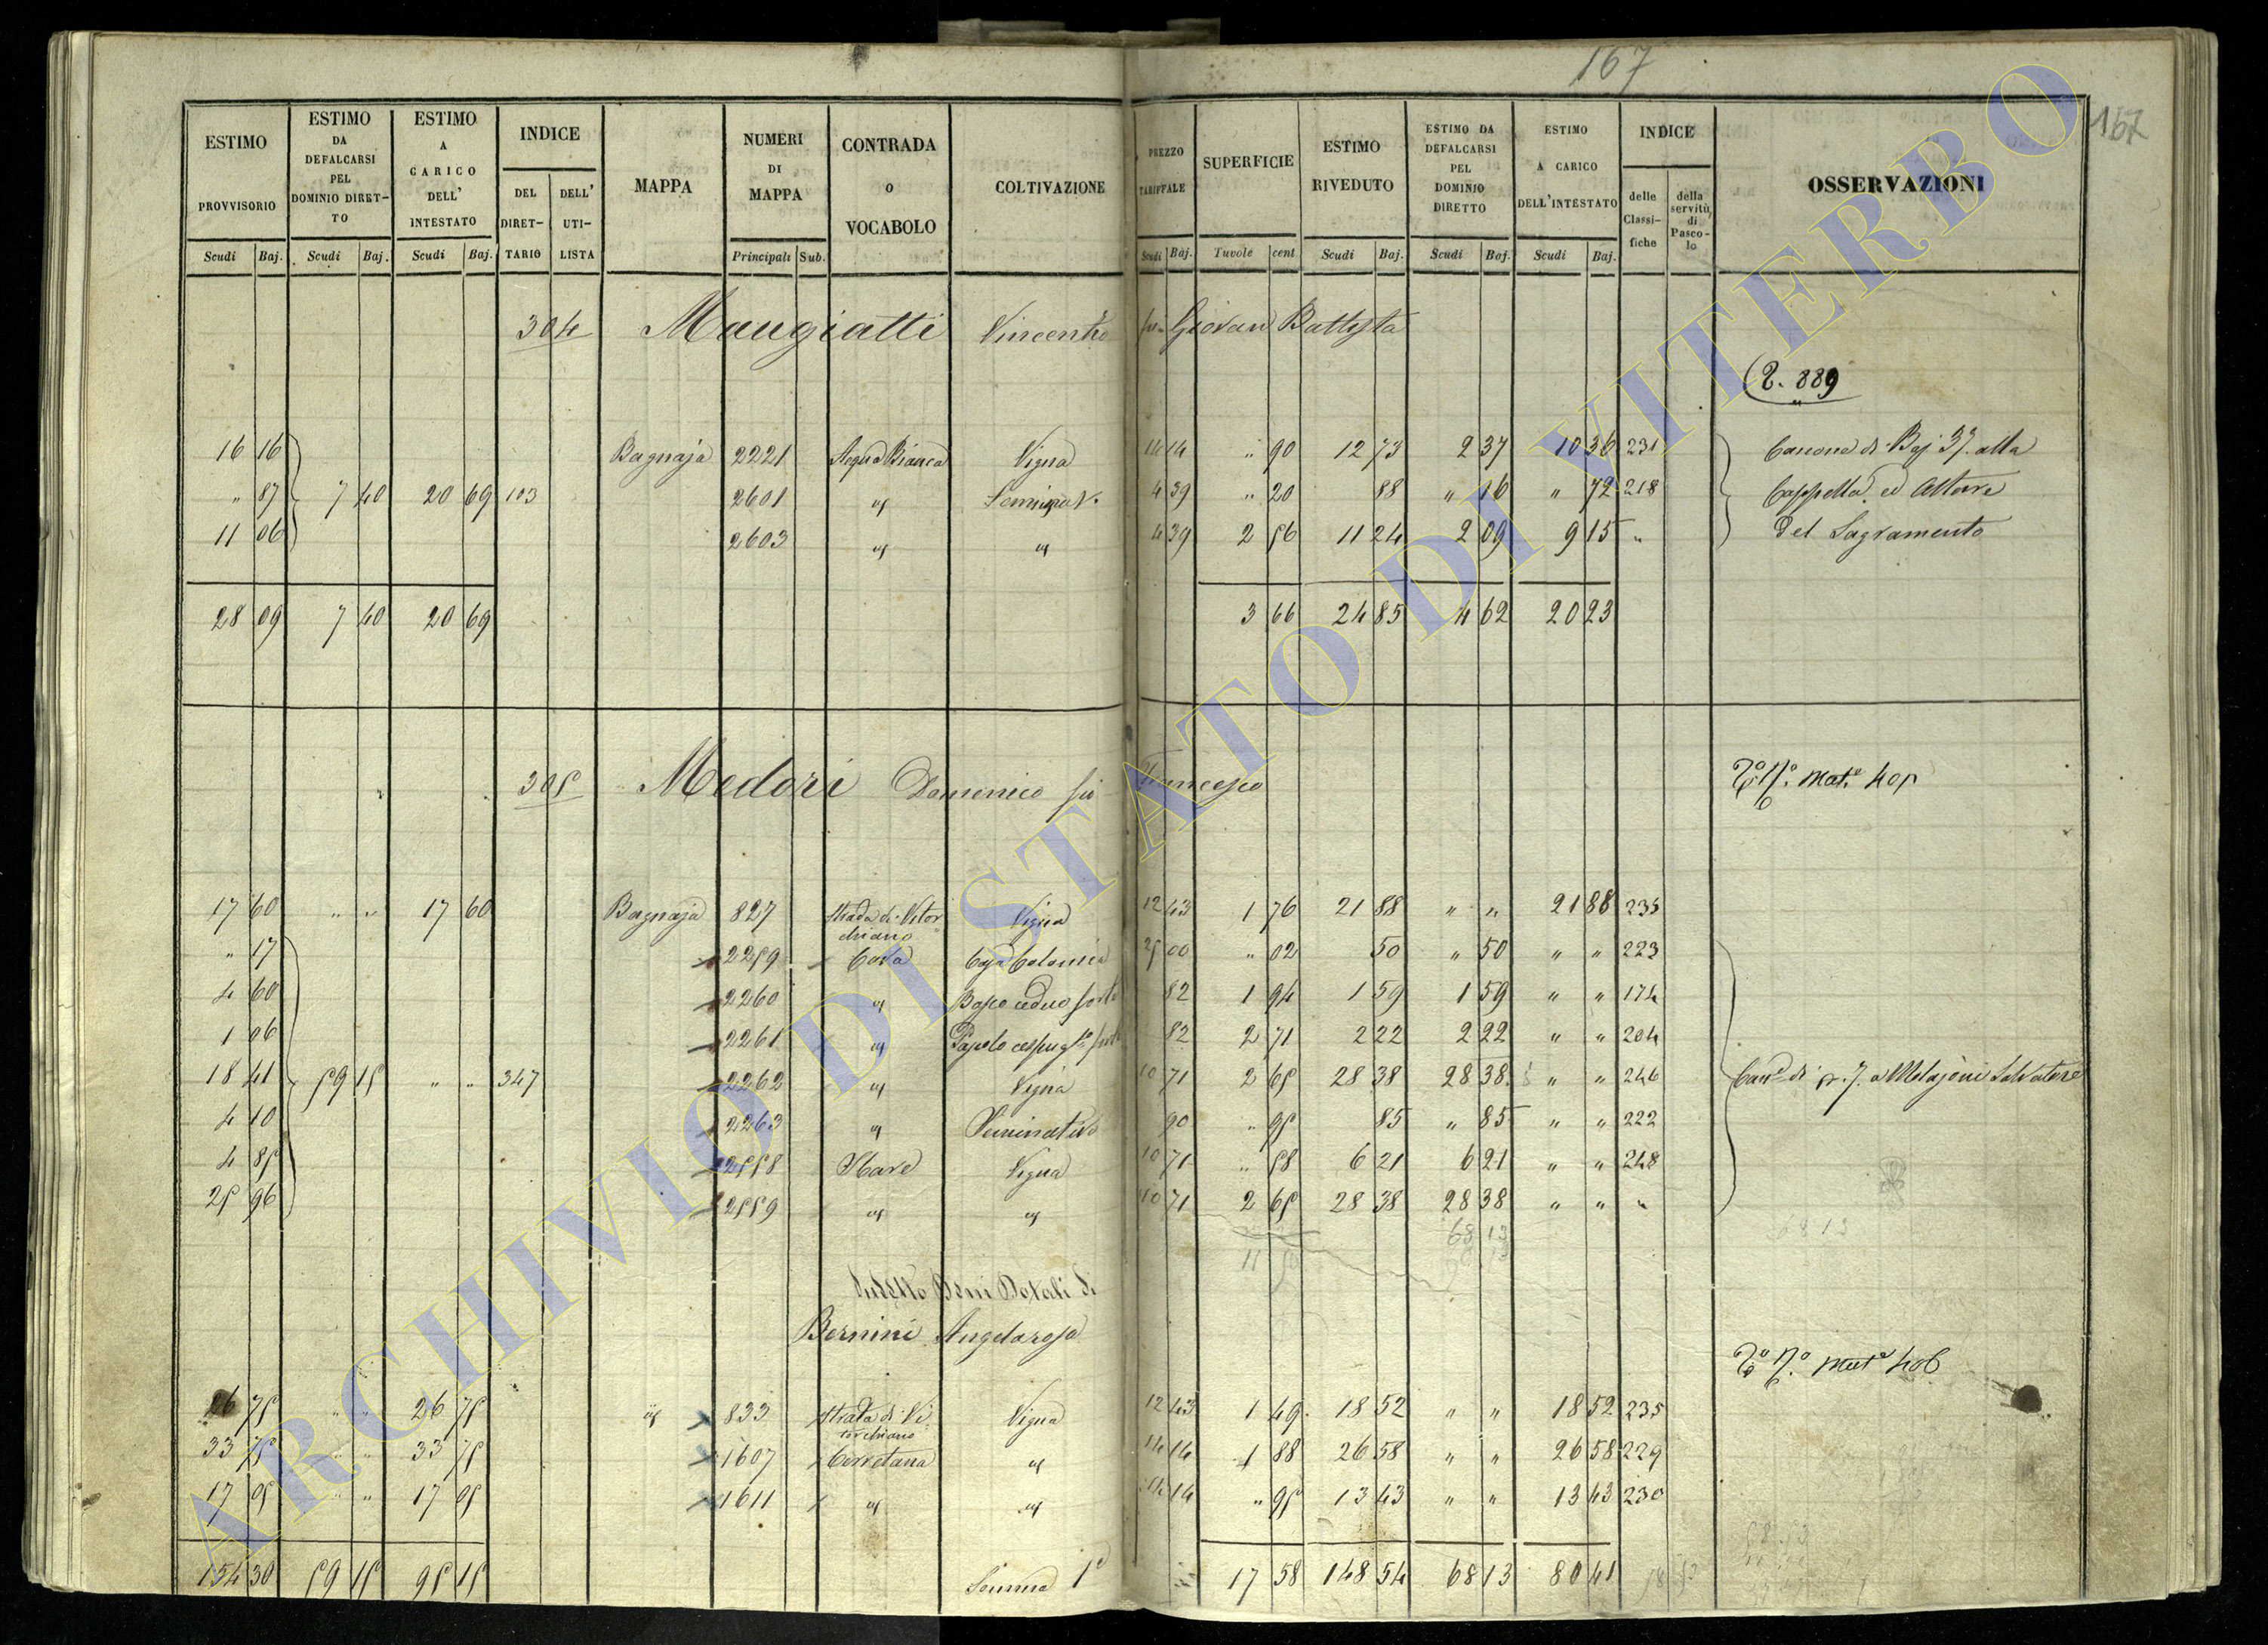 167
167
ESTIMO PROVVISORIO Scudi Baj.
ESTIMO DA DEFALCARSI PEL DOMINIO DIRET-TO Scudi Baj.
ESTIMO A CARICO DELL' INTESTATO Scudi Baj.
INDICE DEL DIRET-TARIO DELL' UTI-LISTA
MAPPA
NUMERI DI MAPPA Principali Sub.
CONTRADA O VOCABOLO
COLTIVAZIONE
PREZZO TARIFFALE Scudi Baj.
SUPERFICIE Tavole cent
ESTIMO RIVEDUTO Scudi Baj.
ESTIMO DA DEFALCARSI PEL DOMINIO DIRETTO Scudi Baj.
ESTIMO A CARICO DELL'INTESTATO Scudi Baj.
INDICE delle Classi-fiche della servitù di Pasco-lo
OSSERVAZIONI
304 Mangiatti Vincenzo fu Giovan Battista
889
16 16 Bagnaja 2221 Acqua Bianca Vigna 14 14 " 90 12 73 2 37 10 36 231 Canone di Baj 37. alla
" 87 7 40 20 69 103 2601 " Seminat. 4 39 " 20 88 " 16 " 72 218 Cappella ed Altare
11 06 2603 " " 4 39 2 56 11 24 2 09 9 15 " del Sagramento
28 09 7 40 20 69 3 66 24 85 4 62 20 23
305 Medori Domenico fu Francesco Mat. 405
17 60 " " 17 60 Bagnaja 827 Strada di Vitor Vigna 12 43 1 76 21 88 " " 21 88 235
chiano
" 17 2259 Cova Casa Colonica 25 00 " 02 50 " 50 " " 223
4 60 2260 " Bosco ceduo forte 82 1 94 1 59 1 59 " " 174
1 06 2261 " Pascolo cespug.to forte 82 2 71 2 22 2 22 " " 204
18 41 59 15 " " 347 2262 " Vigna 10 71 2 65 28 38 28 38 " " 246 Can.e di 7. a Melajoni Salvatore
4 10 2263 " Seminativo 90 " 95 85 " 85 " " 222
4 85 2558 Vigna 10 71 " 58 6 21 6 21 " " 248
25 96 2559 " " 10 71 2 65 28 38 28 38 " " "
68 13
68 13
Sudetto Beni Dotali di
Bernini Angelarosa
Mat. 406
26 75 " " 26 75 " 833 Strada di Vi Vigna 12 43 1 49 18 52 " " 18 52 235
torchiano
33 75 " " 33 75 1607 Cerretana " 14 14 1 88 26 58 " " 26 58 229
17 05 " " 17 05 1611 " " 14 14 " 95 13 43 " " 13 43 230
154 30 59 15 95 15 Somma 17 58 148 54 68 13 80 41
ARCHIVIO DI STATO DI VITERBO